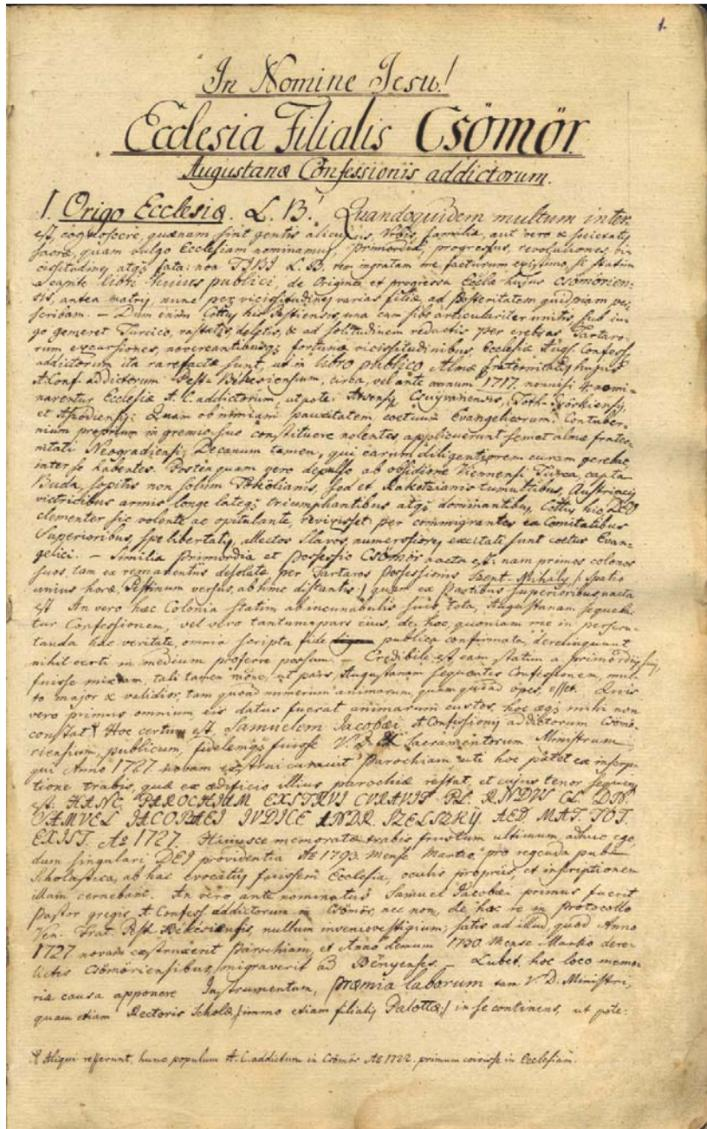 1.
In Nomine Jesu!
Ecclesia Filialis Csömör
Augustanæ Confessionis addictorum.
I. Origo Ecclesiæ. L. B.! Quandoquidem multum inter
est, cognoscere, quænam sint gentis alicujus, Urbis, familiæ, aut vero & societatis
sacræ, quam vulgo Ecclesiam nominamus, primordia, progressus, revolutiones, vi
cissitudines atqs fata: non TIBI L. B. rem ingratam me facturum existimo, si statim
libri hujus publici, de Origine et progressu Eccla hujus Csömörien-
sis, antea matris nunc per vicissitudines varias filiæ, ad posteritatem quidpiam per
scribam. — Dum enim Cottus hic Pestiensis, una cum sibi articulariter unitis sub ju-
go gemeret Turcico, vastatis, deletis, & ad solitudinem redactis per crebras Tartaro-
rum excursiones, fortunæ vicissitudinibus, Ecclesiæ Aug. Confess.
addictorum ita rarefactæ sunt, ut in libro publico Almæ fraternitatis hujus
A. Conf. addictorum Pest- Békesiensium, circa, vel ante annum 1717. nonnisi 4 nomi-
narentur Ecclesiæ A. C. addictorum, utpote:
et Apodiensis: Quam ob nimiam paucitatem coetuum Evangelicorum, Contuber-
nium proprium in gremio suo constituere nolentes applicuerunt semet almæ frater-
nitati Neogradiensi; Decanum tamen, qui earum diligentiorem curam gereret
inter se habentes. Postea quam vero depulso ab obsidione Viennensi Turca, capta
Buda, sopitis non solum Tökölianis, sed et Rakotzianis tumultibus, Austriacis
victricibus armis longe lateqs triumphantibus atqs dominantibus, Cottus hic, DEO
clementer sic volente ac opitulante, revixisset per commigrantes ex Comitatibus
Superioribus, spe libertatis, allectos Slavos, numerosiores excitati sunt coetus Evan-
gelici. — Similia primordia et Possessio Csömör nacta est: nam primos colonos
suos tam ex remanentiis desolatæ per Tartaros Possessionis Szent-Mihály / spatio
unius horæ, Pestinum versus, ab hinc distantis / quam ex Partibus superioribus nacta
est. An vero hæc Colonia statim ab incunabulis suis, tota, Augustanam seque
tur Confessionem, vel vero tantum pars ejus, de hoc, quoniam me in perscru-
tanda hac veritate, omnia scripta fide publica confirmata, derelinquunt
nihil certi in medium proferre possum. — Credibile est eam statim a primordiis suis,
fuisse mixtam, tali tamen mõne, ut pars, Augustanam sequentes Confessionem, mul-
to major & validior, tam quoad numerum animarum, quam quoad opes, esset. Quis
vero primus omnium eis datus fuerat animarum custos, hoc æqs mihi non
constat. Hoc certum est, Samuelem Jacobæi A. Confessionis addictorum Csömö-
riensium, publicum, fidelemqs fuisse V. D. & Sacramentorum Ministrum,
qui Anno 1727. novam exstrui curavit Parochiam uti hoc patet ex inscrip-
tione trabis, quæ ex ædificio illius parochiæ restat, et cujus tenor sequens
est: HANC PAROCHIAM EXSTRVI CVRAVIT PL. RNDVS CL. DN.
SAMVEL JACOBAEI IVDICE ANDR. SZELSZKY. AED. MAT. TOT.
EXIST. Ao 1727. Hujusce memoratæ trabis frustum ultimum, adhuc ego,
dum singulari DEI providentia Ao 1793. Mense Martio, pro regenda publ.
Scholastica, ab hac evocatus fuissem Ecclesia, oculis propriis, et inscriptionem
illam cernebam. An vero ante nominatus Samuel Jacobæi primus fuerit
pastor gregis A. Confess. addictorum in Csömör, nec non, de hac re in protocollo
Ven. Frat. Pest Békésiensis, nullum invenio vestigium; satis ad illud, quod Anno
1727 novam exstruxerit parochiam, et Anno demum 1730. Mense Martio dere-
lictis Csömöriensibus, migraverit ad Bényenses. — Lubet, hoc loco memo-
riæ causa apponere Instrumentum, præmia laborum tam V. D. Ministri,
quam etiam Rectoris Scholæ / immo etiam filialis Palottæ / in se continens, ut pote:
Aliqui referunt, hunc populum A. C. addictum in Csömör Ao 1722. primum coivisse in Ecclesiam.